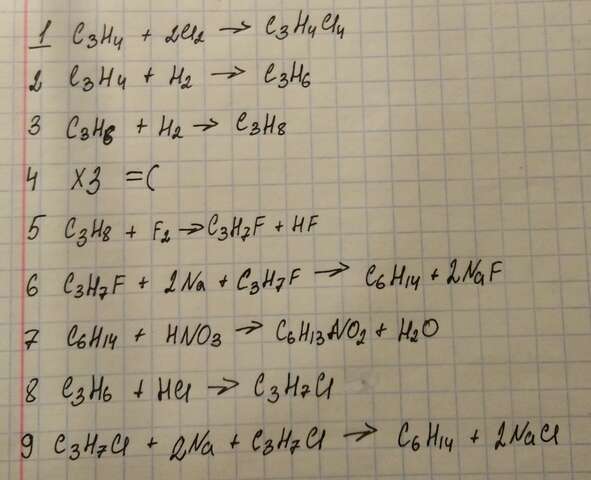 1 C3H4 + 2Cl2 → C3H4Cl4
2 C3H4 + H2 → C3H6
3 C3H6 + H2 → C3H8
4 x3 =(
5 C3H8 + F2 → C3H7F + HF
6 C3H7F + 2Na + C3H7F → C6H14 + 2NaF
7 C6H14 + HNO3 → C6H13NO2 + H2O
8 C3H6 + HCl → C3H7Cl
9 C3H7Cl + 2Na + C3H7Cl → C6H14 + 2NaCl